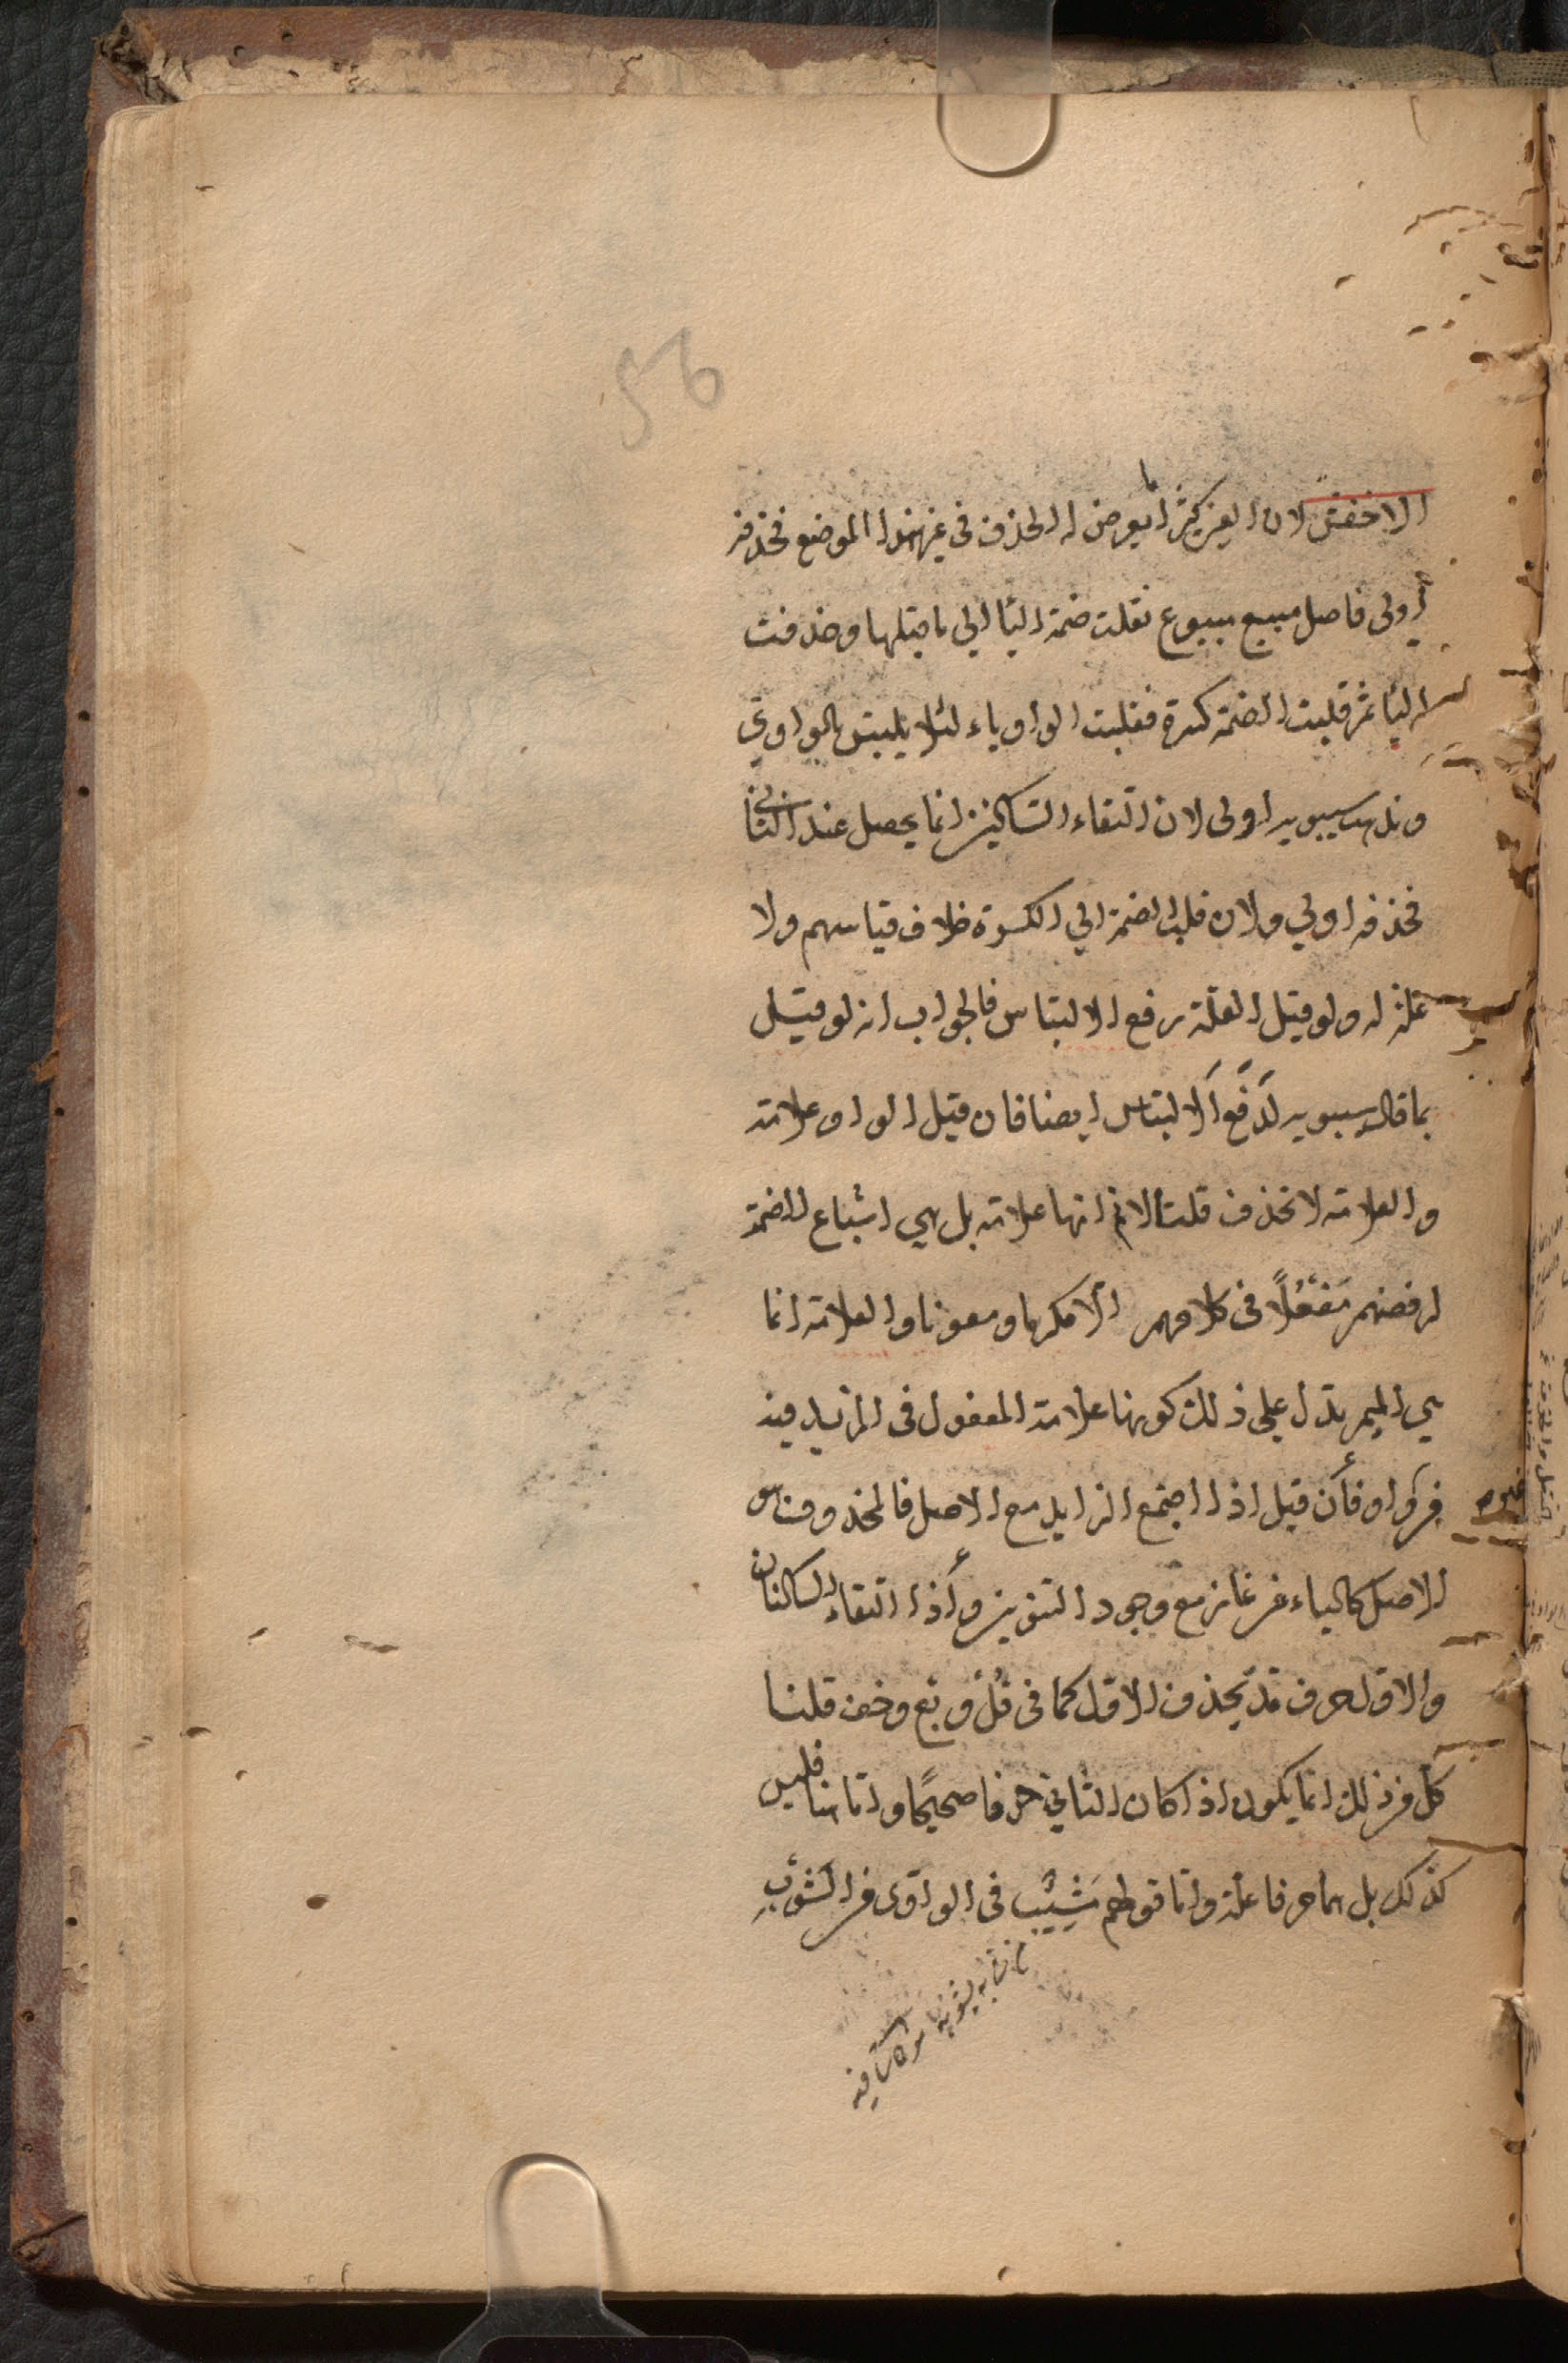 56
الاخفش لان العين كثيرا ما يعرض له الحذف فى غير هذا الموضع فحذفه
أولى فاصل مبيع مبيوع نقلت ضمة اليا الى ما قبلها وحذفت
اليا ثم قلبت الضمة كسرة فقلبت الواو ياء لئلا يلتبس بالواوي
ومذهب سيبويه اولى لان التقاء الساكنين انما يحصل عند الثاني
فحذفه اولي ولان قلب الضمة الي الكسرة خلاف قياسهم ولا
علة له ولو قيل العلة رفع الالتباس فالجواب انه لو قيل
بما قال سيبويه لَدفع الالتباس ايضا فان قيل الواو علامة
والعلامة لا تحذف قلت لانم انها علامة بل هي اشباع للضمة
لرفضهم مَفْعُلًا فى كلامهم الا مكرما ومعونا والعلامة انما
هي الميم يدل على ذلك كونها علامة المفعول فى المزيد فيه
من غير واو فأن قيل اذا اجتمع الزايد مع الاصل فالمحذوف هو
الاصل كالياء من غاز مع وجود التنوين وأذا التقاء الساكنان
والاول حرف مد يحذف الاول كما فى قُلْ وبع وخف قلنا
كل من ذلك انما يكون اذا كان الثاني حرفا صحيحًا واما هنا فليس
كذلك بل هما حرفا علة واما قولهم مَشِيْب فى الواوى من الشَوْبِ